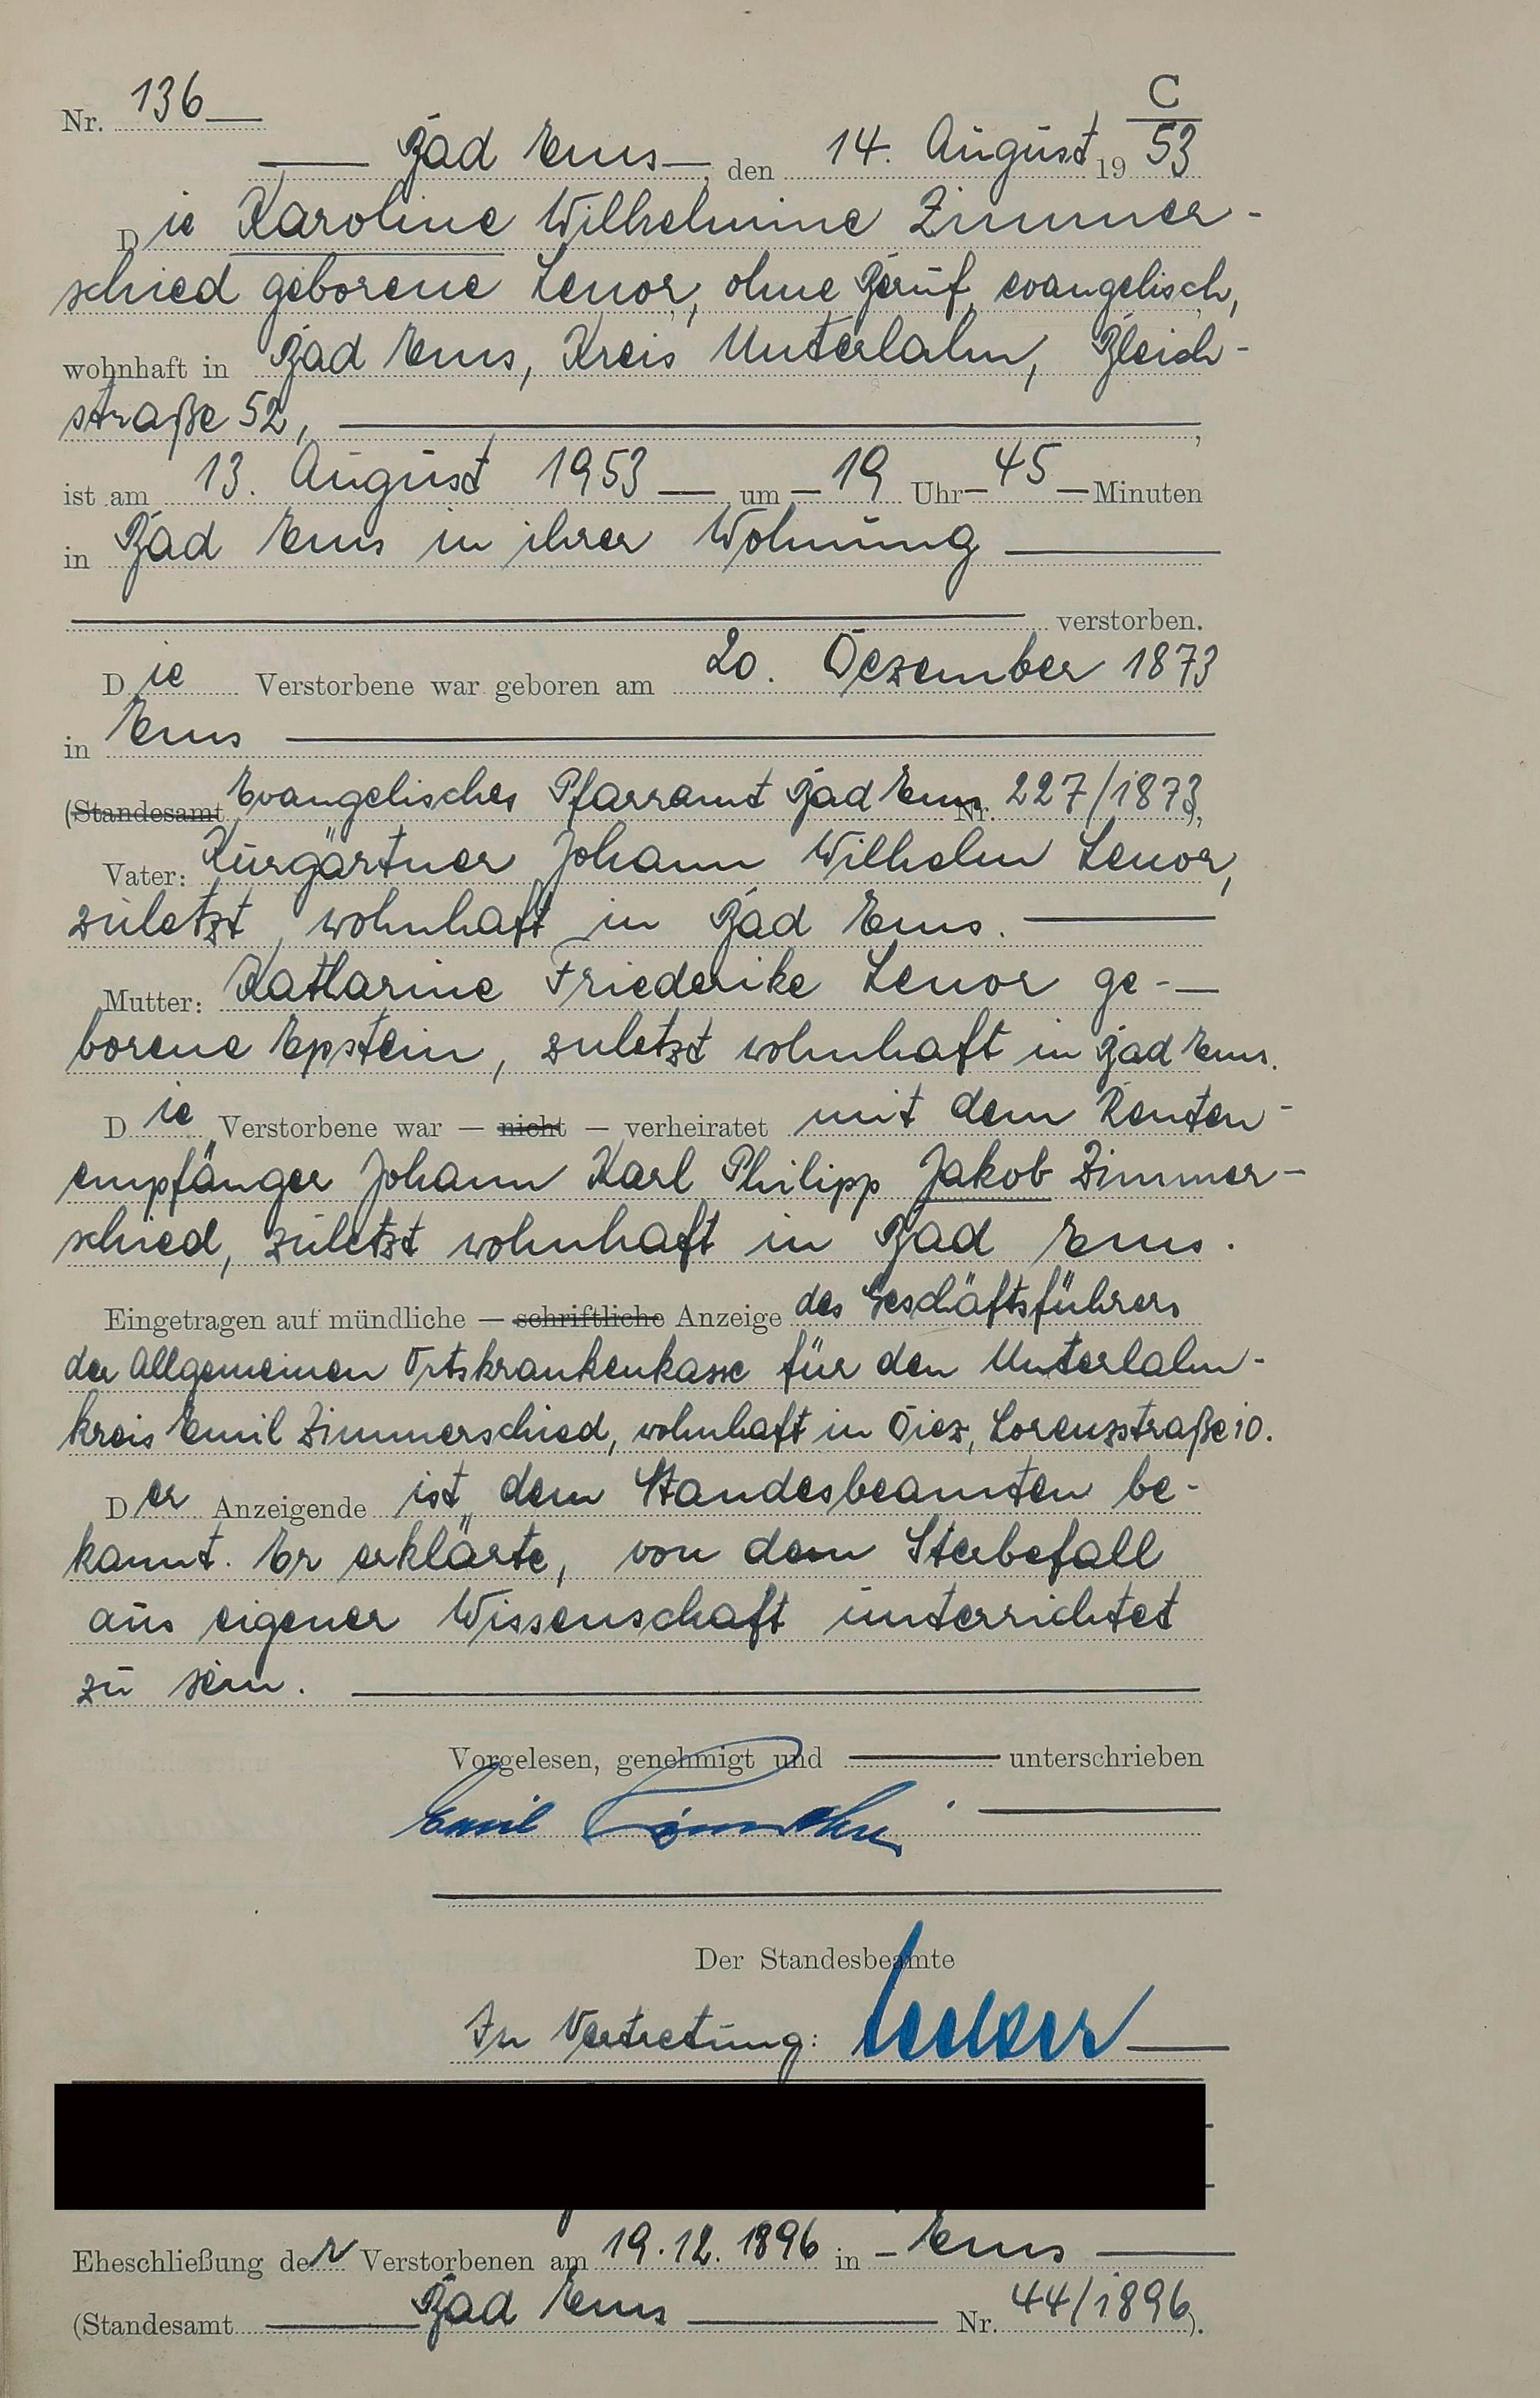 C
Nr. 136
Bad Ems, den 14. August 1953
Die Karoline Wilhelmine Zimmer-
schied geborene Lenor, ohne Beruf, evangelisch,
wohnhaft in Bad Ems, Kreis Unterlahn, Bleich-
straße 52,
ist am 13. August 1953 um 19 Uhr 45 Minuten
in Bad Ems in ihrer Wohnung
verstorben.
Die Verstorbene war geboren am 20. Dezember 1873
in Ems
(Standesamt Evangelisches Pfarramt Bad Ems Nr. 227/1873),
Vater: Kurgärtner Johann Wilhelm Lenor,
zuletzt wohnhaft in Bad Ems.
Mutter: Katharine Friederike Lenor ge-
borene Epstein, zuletzt wohnhaft in Bad Ems.
Die Verstorbene war — nicht — verheiratet mit dem Renten-
empfänger Johann Karl Philipp Jakob Zimmer-
schied, zuletzt wohnhaft in Bad Ems.
Eingetragen auf mündliche — schriftliche Anzeige des Geschäftsführers
der Allgemeinen Ortskrankenkasse für den Unterlahn-
kreis Emil Zimmerschied, wohnhaft in Diez, Lorenzstraße 10.
Der Anzeigende ist dem Standesbeamten be-
kannt. Er erklärte, von dem Sterbefall
aus eigener Wissenschaft unterrichtet
zu sein.
Vorgelesen, genehmigt und unterschrieben
Emil
Der Standesbeamte
In Vertretung:
Eheschließung der Verstorbenen am 19.12.1896 in Ems
(Standesamt Bad Ems Nr. 44/1896).